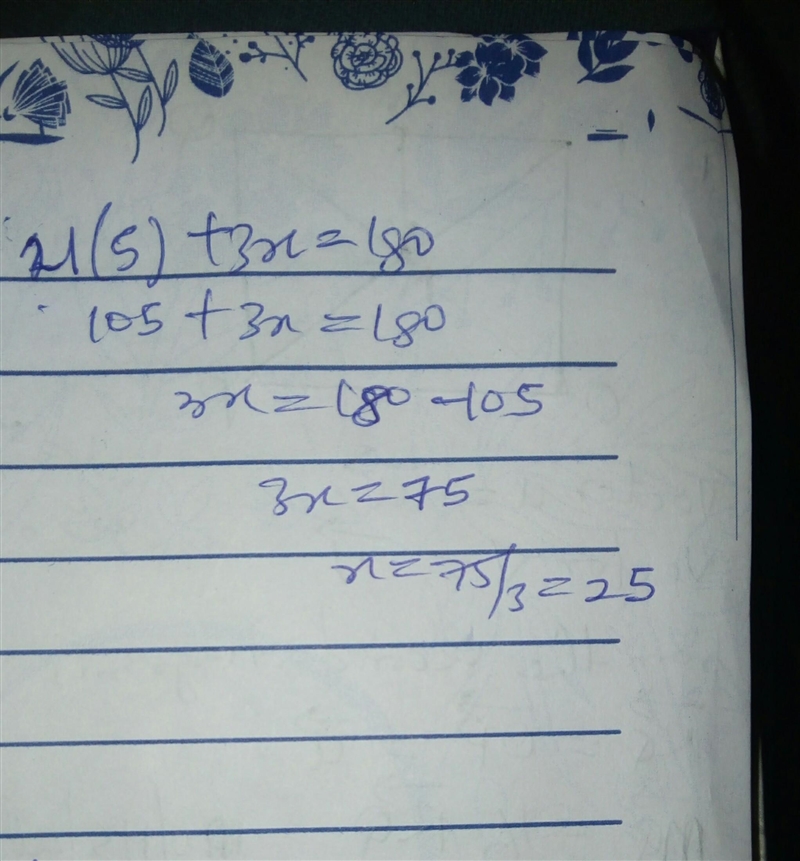 21(5) +3x = 180
105 + 3x = 180
3x = 180 - 105
3x = 75
x = 75/3 = 25